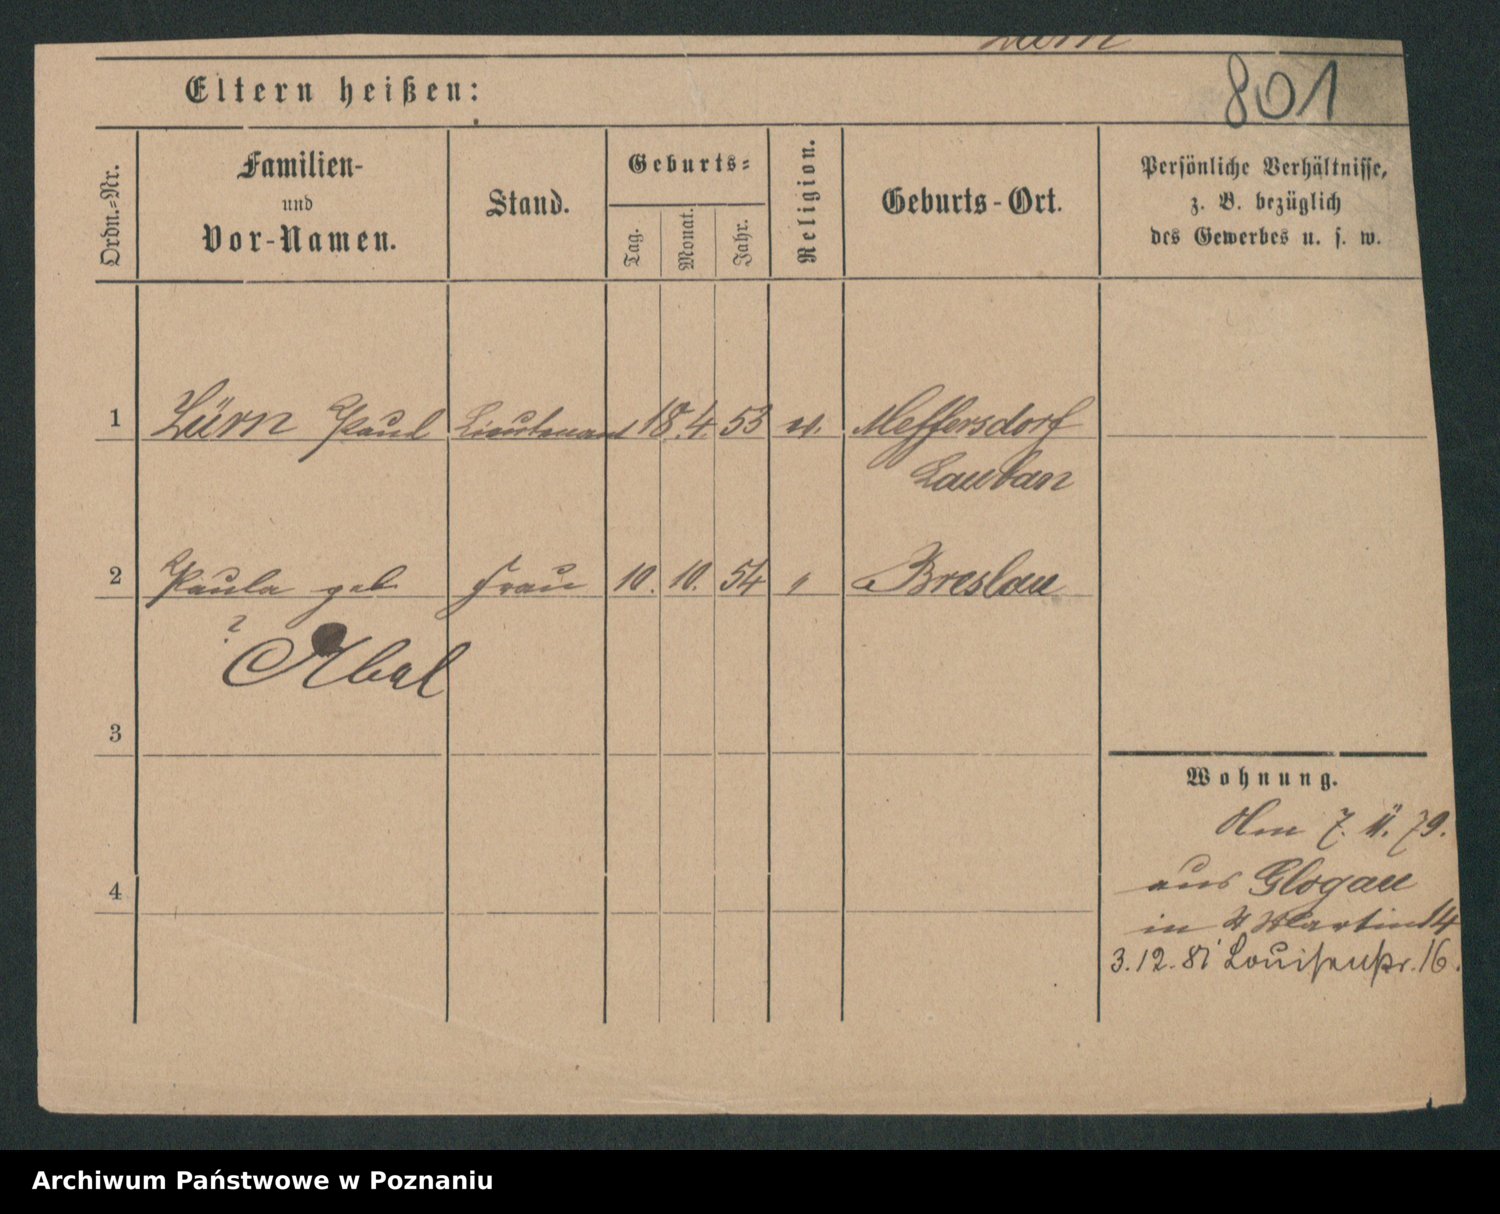 801
Eltern heißen:
Ordn.-Nr.
Familien-
und
Vor-Namen.
Stand.
Geburts-
Tag.
Monat.
Jahr.
Religion.
Geburts-Ort.
Persönliche Verhältnisse,
z. B. bezüglich
des Gewerbes u. s. w.
1 Zürn Paul Lieutenant 18. 4. 53 ev. Meffersdorf
Lauban
2 Paula geb Frau 10. 10. 54 " Breslau
?
Abel
3
4
Wohnung.
Am 7. 11. 79.
aus Glogau
in St Martin 14
3.12.81 Louisenstr. 16.
Archiwum Państwowe w Poznaniu